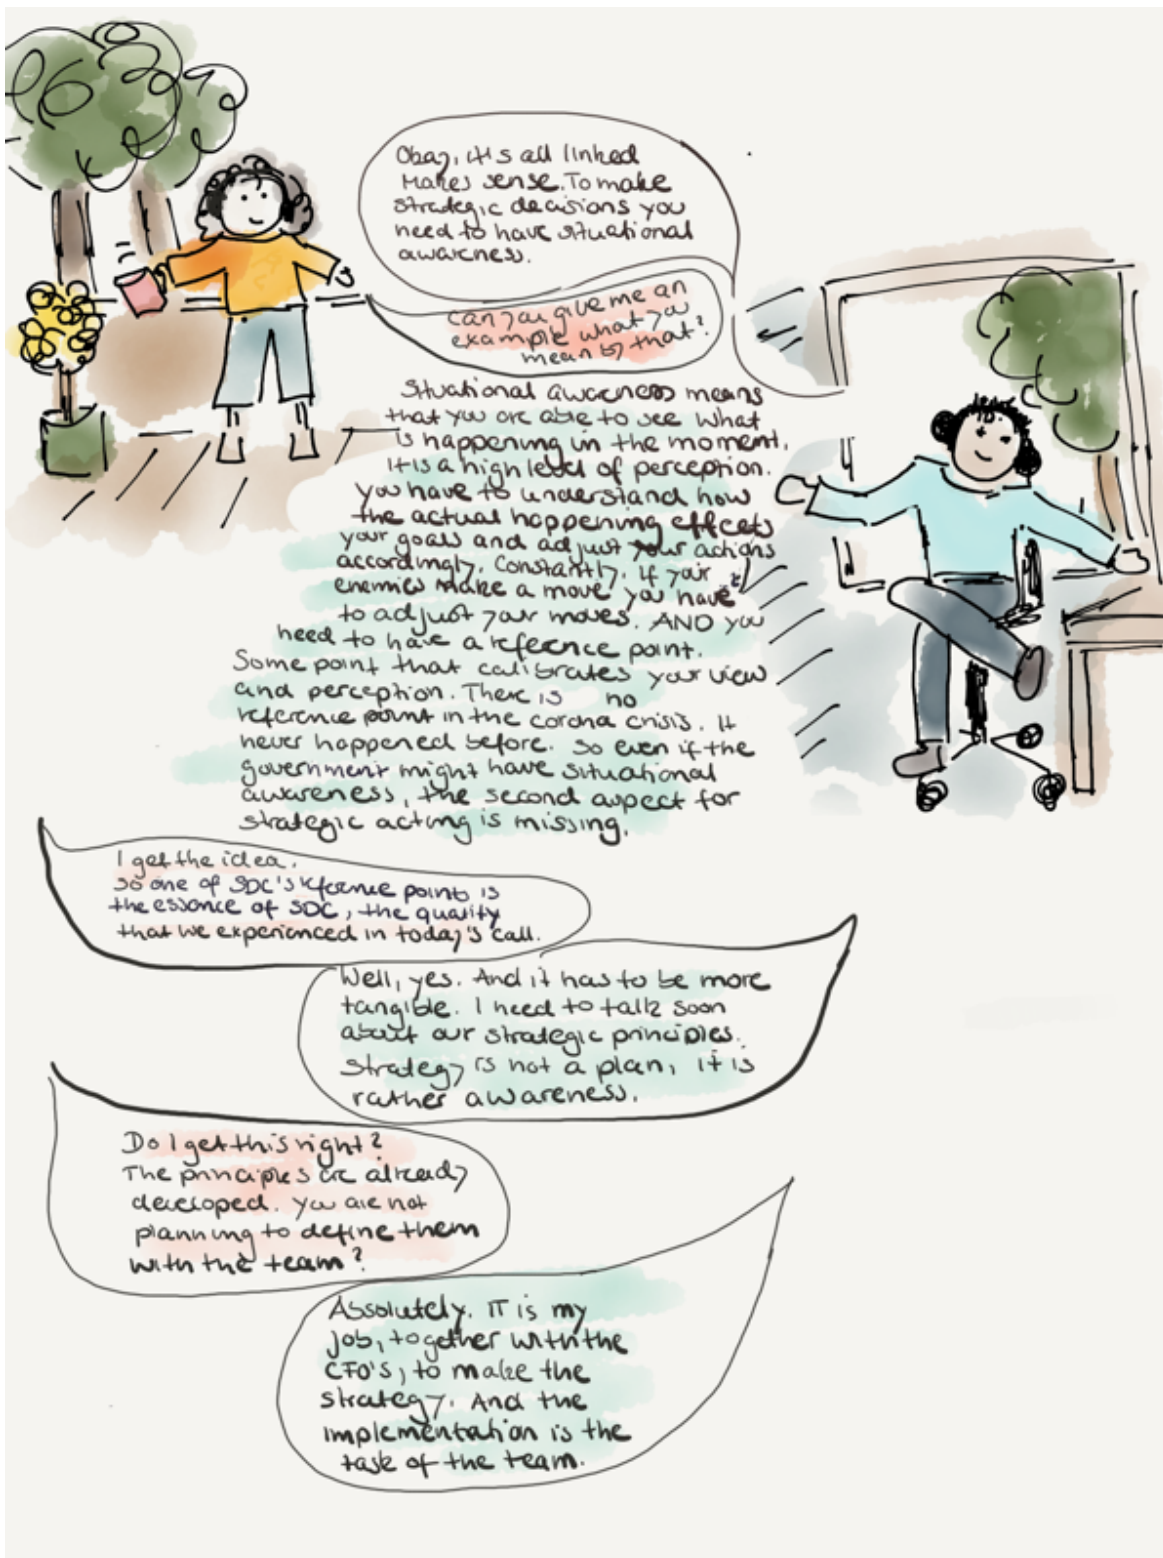 Okay, it's all linked
Makes sense. To make
strategic decisions you
need to have situational
awareness.
Can you give me an
example what you
mean by that?
Situational awareness means
that you are able to see what
is happening in the moment.
It is a high level of perception.
you have to understand how
the actual happening effects
your goals and adjust your actions
accordingly. Constantly. If your
enemies make a move you have
to adjust your moves. AND you
need to have a reference point.
Some point that calibrates your view
and perception. There is no
reference point in the corona crisis. It
never happened before. So even if the
government might have situational
awareness, the second aspect for
strategic acting is missing.
I get the idea.
So one of SDC's reference points is
the essence of SDC, the quality
that we experienced in today's call.
Well, yes. And it has to be more
tangible. I need to talk soon
about our strategic principles.
Strategy is not a plan, it is
rather awareness.
Do I get this right?
The principles are already
developed. You are not
planning to define them
with the team?
Absolutely. IT is my
job, together with the
CFO's, to make the
strategy. And the
implementation is the
task of the team.